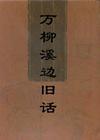 万柳溪边旧话